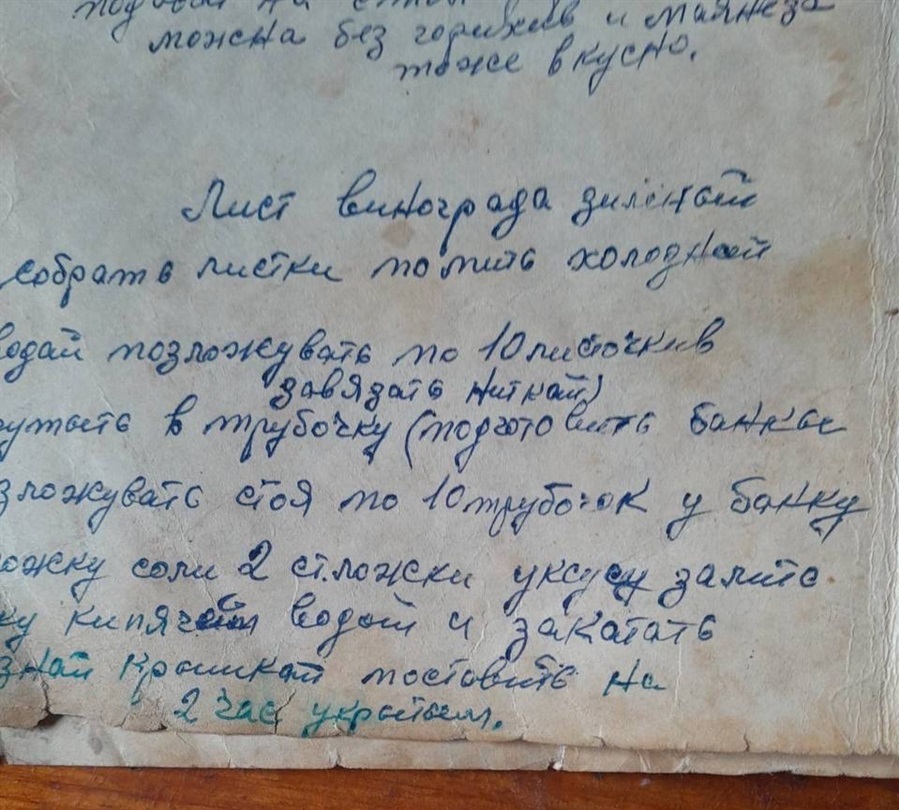 подовай на стол
можна без горихив и маянеза
тоже вкусно.
Лист винограда зиленай
собрать листки помить холодной
водай позложувать по 10 листочкив
завязать ниткай)
в трубочку (подготовить банкы
зложувать стоя по 10 трубочок у банку
ложку соли 2 ст.ложки уксусу залить
ку кипячей водой и закатать
знай крышкай постовить на
2 час укрытым.